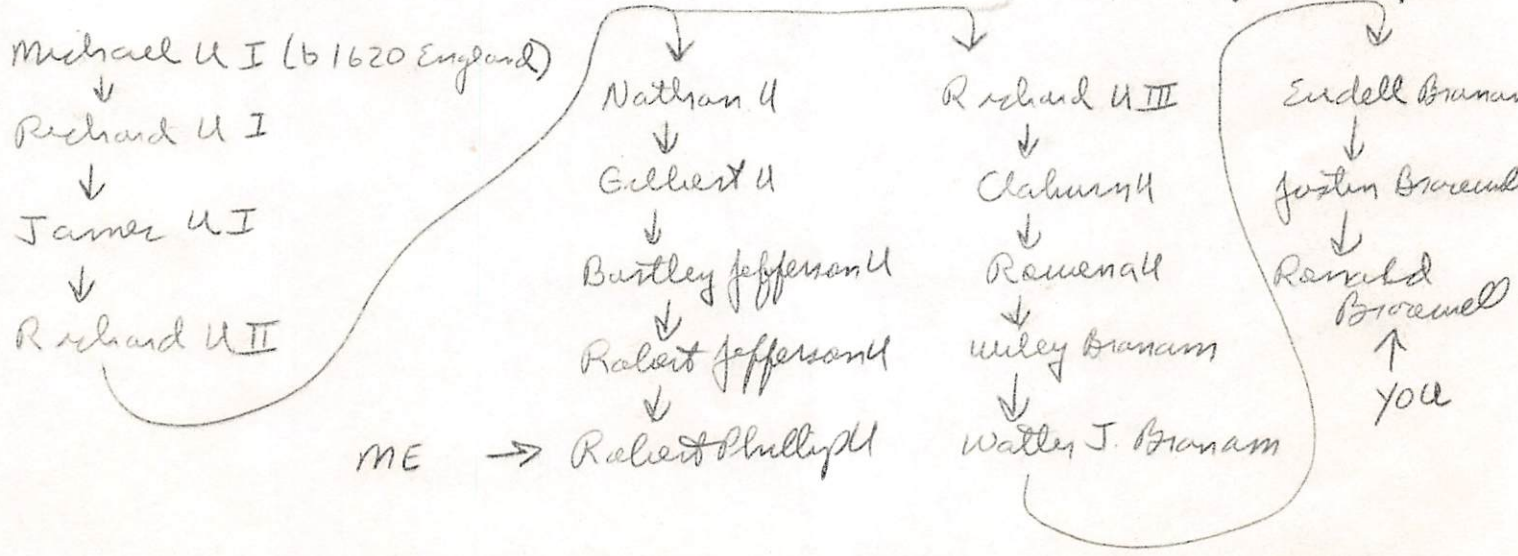 Michael U I (b 1620 England)
Richard U I
James U I
Richard U II
Nathan U
Gilbert U
Bartley Jefferson U
Robert Jefferson U
ME → Robert Phillip U
Richard U III
Claburn U
Rowena U
Wiley Branam
Walter J. Branam
Branam
Justin
Ronald
Braswell
YOU